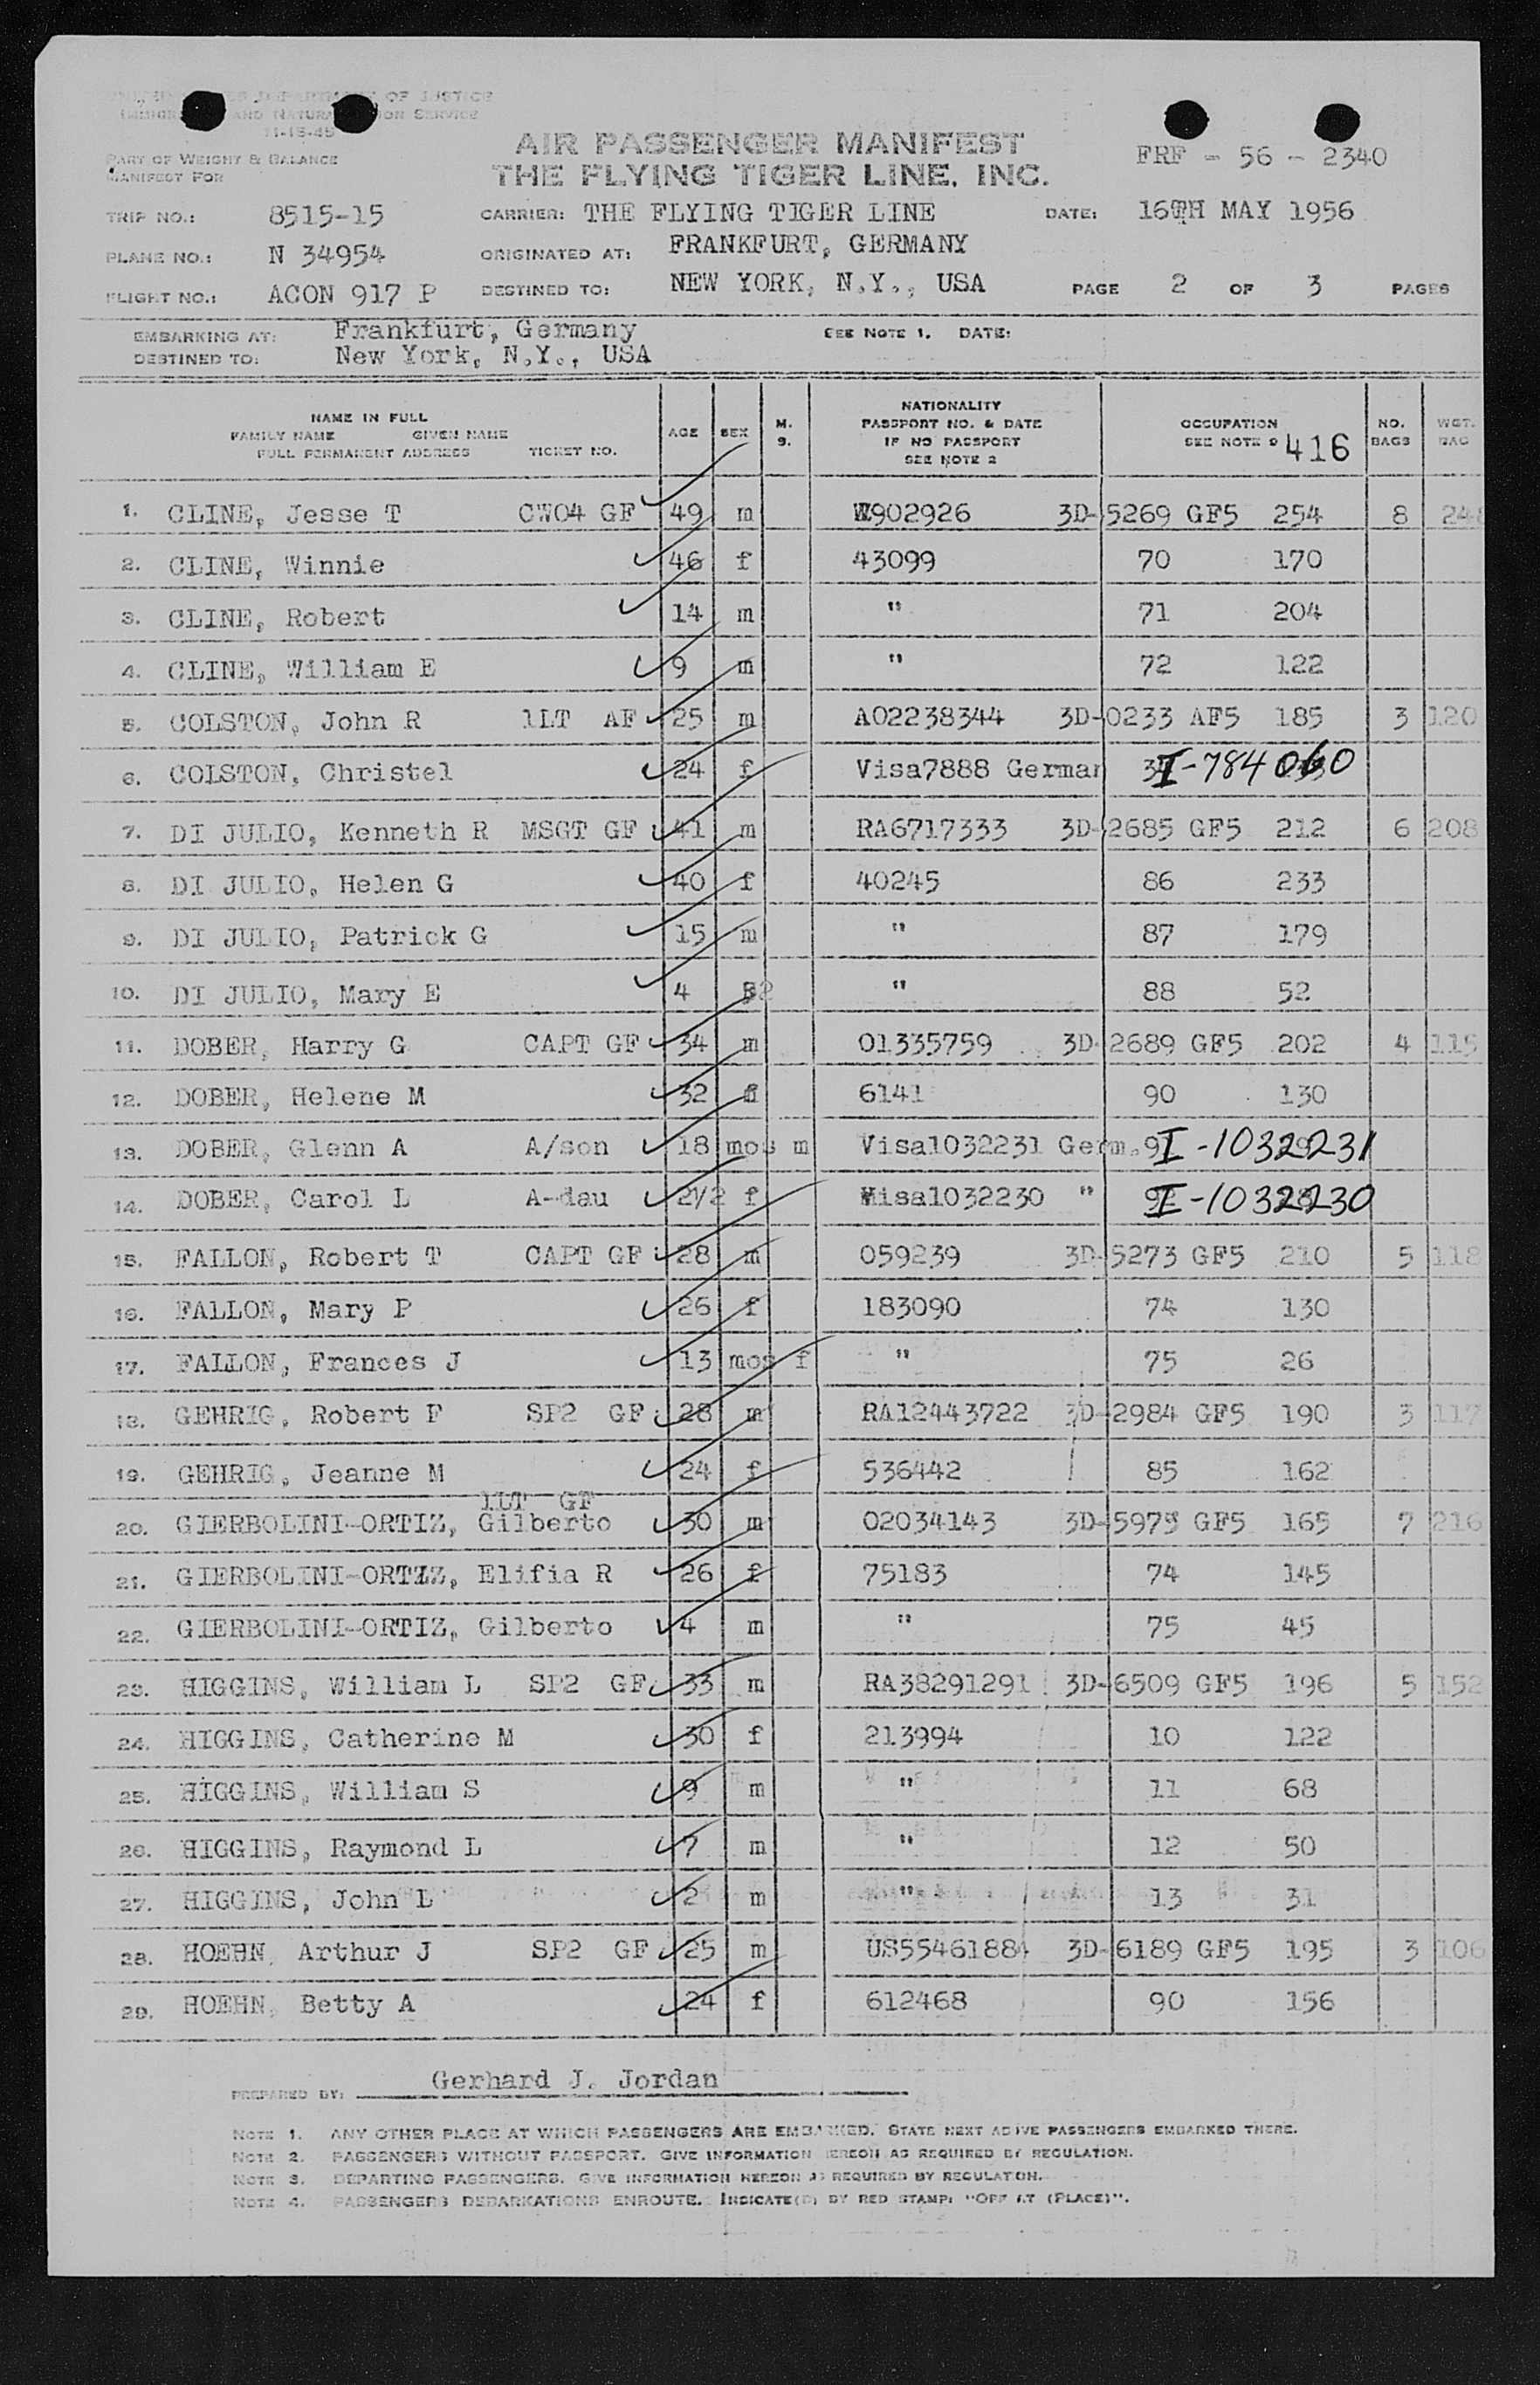 UNITED STATES DEPARTMENT OF JUSTICE
IMMIGRATION AND NATURALIZATION SERVICE
11-15-45
PART OF WEIGHT & BALANCE
MANIFEST FOR
AIR PASSENGER MANIFEST
THE FLYING TIGER LINE, INC.
FRF - 56 - 2340
TRIP NO.: 8515-15 CARRIER: THE FLYING TIGER LINE DATE: 16TH MAY 1956
PLANE NO.: N 34954 ORIGINATED AT: FRANKFURT, GERMANY
FLIGHT NO.: ACON 917 P DESTINED TO: NEW YORK, N.Y., USA PAGE 2 OF 3 PAGES
EMBARKING AT: Frankfurt, Germany SEE NOTE 1. DATE:
DESTINED TO: New York, N.Y., USA
NAME IN FULL
FAMILY NAME GIVEN NAME
FULL PERMANENT ADDRESS TICKET NO.
AGE SEX M. S.
NATIONALITY
PASSPORT NO. & DATE
IF NO PASSPORT
SEE NOTE 2
OCCUPATION
SEE NOTE 416
NO. BAGS WGT. BAG
1. CLINE, Jesse T CWO4 GF 49 m W902926 3D-5269 GF5 254 8 24
2. CLINE, Winnie 46 f 43099 70 170
3. CLINE, Robert 14 m " 71 204
4. CLINE, William E 9 m " 72 122
5. COLSTON, John R 1LT AF 25 m AO2238344 3D-0233 AF5 185 3 120
6. COLSTON, Christel 24 f Visa7888 German I-784060
7. DI JULIO, Kenneth R MSGT GF 41 m RA6717333 3D-2685 GF5 212 6 208
8. DI JULIO, Helen G 40 f 40245 86 233
9. DI JULIO, Patrick G 15 m " 87 179
10. DI JULIO, Mary E 4 " 88 52
11. DOBER, Harry G CAPT GF 34 m 01335759 3D-2689 GF5 202 4 115
12. DOBER, Helene M 32 f 6141 90 130
13. DOBER, Glenn A A/son 18 mos m Visa1032231 Germ. I-1032231
14. DOBER, Carol L A-dau 2½ f Visa1032230 " I-1032230
15. FALLON, Robert T CAPT GF 28 m 059239 3D-5273 GF5 210 5 118
16. FALLON, Mary P 26 f 183090 74 130
17. FALLON, Frances J 13 mos f " 75 26
18. GEHRIG, Robert F SP2 GF 28 m RA12443722 3D-2984 GF5 190 3 117
19. GEHRIG, Jeanne M 24 f 536442 85 162
1LT GF
20. GIERBOLINI-ORTIZ, Gilberto 30 m 02034143 3D-5973 GF5 165 7 216
21. GIERBOLINI-ORTIZ, Elifia R 26 f 75183 74 145
22. GIERBOLINI-ORTIZ, Gilberto 4 m " 75 45
23. HIGGINS, William L SP2 GF 33 m RA38291291 3D-6509 GF5 196 5 152
24. HIGGINS, Catherine M 30 f 213994 10 122
25. HIGGINS, William S 9 m " 11 68
26. HIGGINS, Raymond L 7 m " 12 50
27. HIGGINS, John L 2 m " 13 31
28. HOEHN, Arthur J SP2 GF 25 m US55461884 3D-6189 GF5 195 3 106
29. HOEHN, Betty A 24 f 612468 90 156
PREPARED BY: Gerhard J. Jordan
NOTE 1. ANY OTHER PLACE AT WHICH PASSENGERS ARE EMBARKED. STATE NEXT ABOVE PASSENGERS EMBARKED THERE.
NOTE 2. PASSENGERS WITHOUT PASSPORT. GIVE INFORMATION HEREON AS REQUIRED BY REGULATION.
NOTE 3. DEPARTING PASSENGERS. GIVE INFORMATION HEREON AS REQUIRED BY REGULATION.
NOTE 4. PASSENGERS DEBARKATIONS ENROUTE. INDICATE(D) BY RED STAMP: "OFF AT (PLACE)".